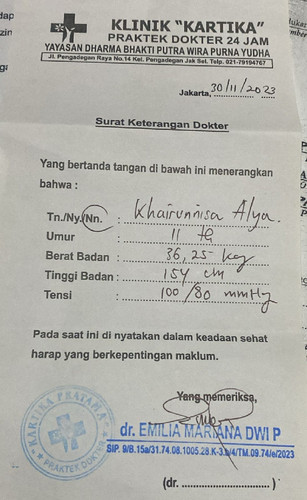 KLINIK "KARTIKA"
PRAKTEK DOKTER 24 JAM
YAYASAN DHARMA BHAKTI PUTRA WIRA PURNA YUDHA
Jl. Pengadegan Raya No.14 Kel. Pengadegan Jak Sel. Telp. 021-79194767
Jakarta, 30/11/2023
Surat Keterangan Dokter
Yang bertanda tangan di bawah ini menerangkan
bahwa :
Tn./Ny./Nn. : Khairunnisa Alya.
Umur : 11 th
Berat Badan : 36,25 kg
Tinggi Badan : 154 cm
Tensi : 100/80 mmHg
Pada saat ini di nyatakan dalam keadaan sehat
harap yang berkepentingan maklum.
Yang memeriksa,
KARTIKA PRATAMA
PRAKTEK DOKTER
dr. EMILIA MARIANA DWI P
(dr. .............................. )